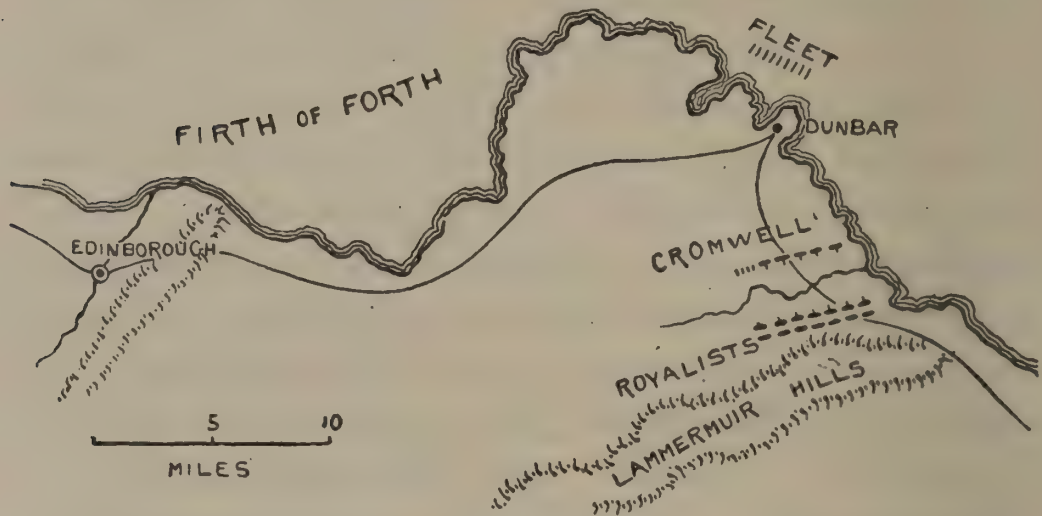 FLEET
FIRTH OF FORTH
DUNBAR
EDINBOROUGH
CROMWELL
ROYALISTS
LAMMERMUIR HILLS
5 10
MILES